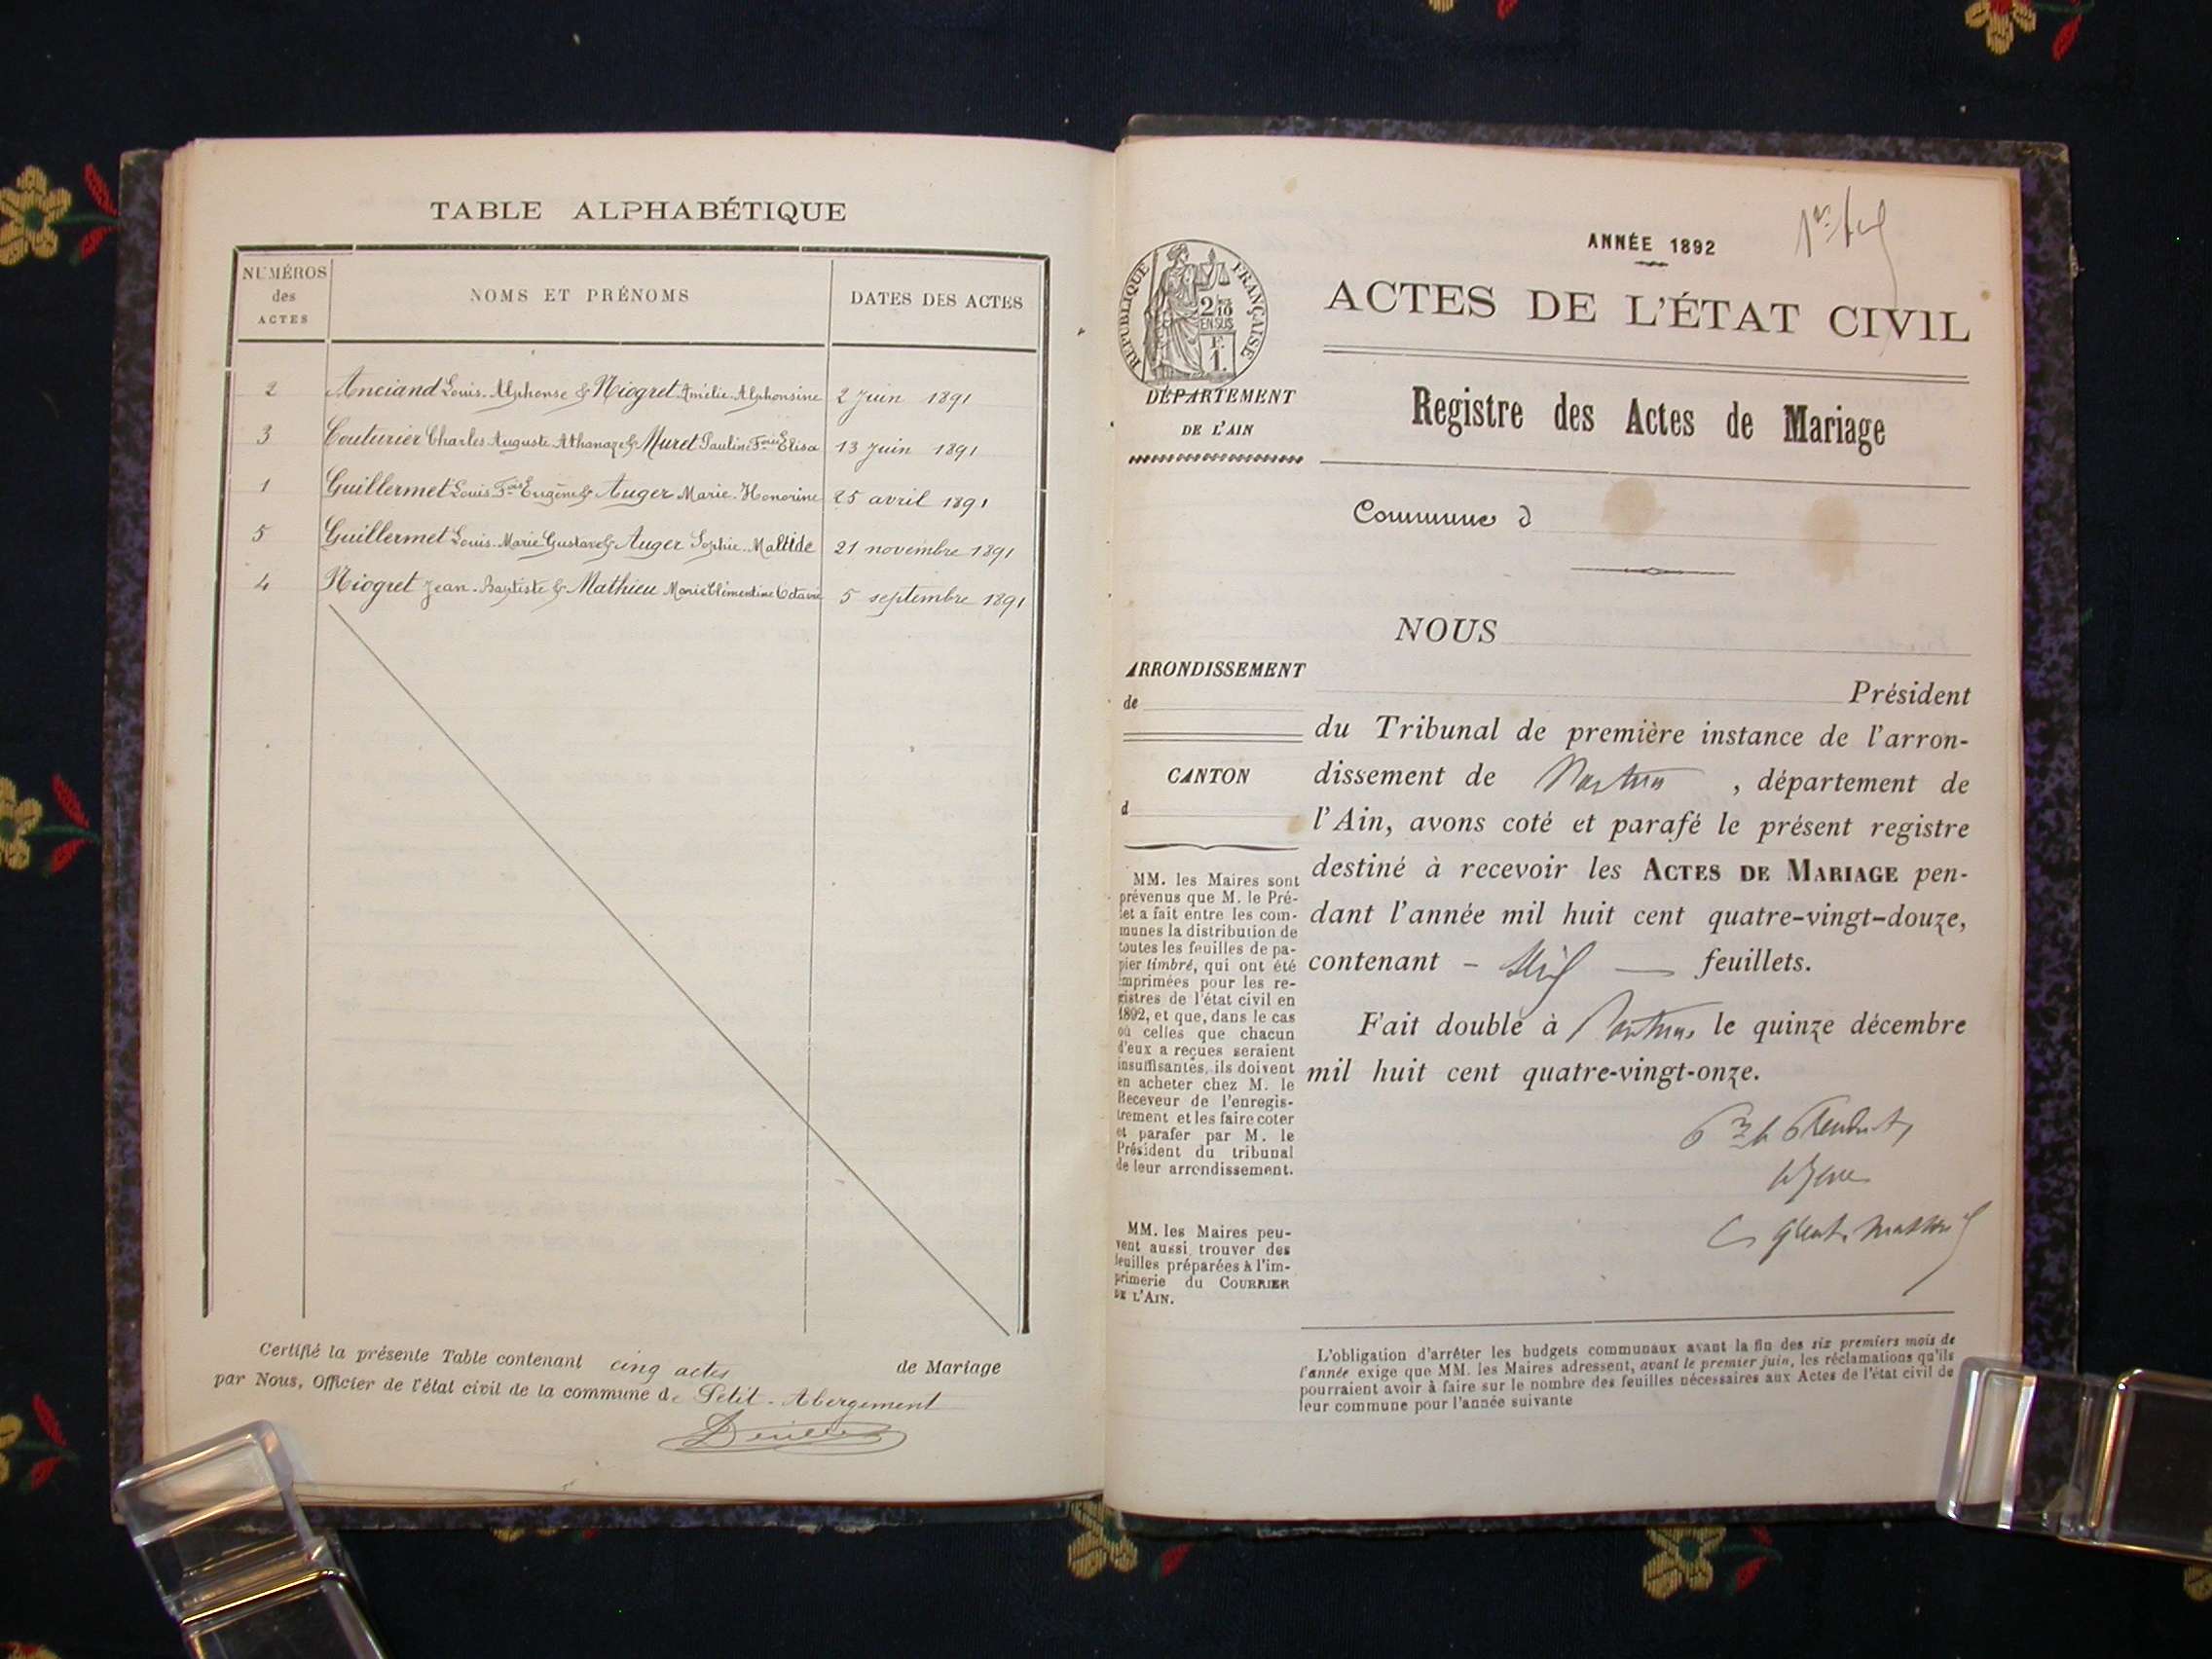 TABLE ALPHABÉTIQUE
NUMÉROS
des
ACTES
NOMS ET PRÉNOMS
DATES DES ACTES
2 Anciand Louis-Alphonse & Niogret Amélie-Alphonsine 2 Juin 1891
3 Couturier Charles Auguste Athanaze & Muret Pauline Foise Elisa 13 Juin 1891
1 Guillermet Louis Fois Eugène & Auger Marie-Honorine 25 avril 1891
5 Guillermet Louis-Marie Gustave & Auger Sophie-Maltide 21 novembre 1891
4 Niogret Jean-Baptiste & Mathieu Marie Clémentine Octavie 5 septembre 1891
Certifié la présente Table contenant cinq actes de Mariage
par Nous, Officier de l'état civil de la commune de Petit-Abergement
ANNÉE 1892
RÉPUBLIQUE FRANÇAISE
2/10
EN SUS
F.
1.
ACTES DE L'ÉTAT CIVIL
DÉPARTEMENT
DE L'AIN
Registre des Actes de Mariage
Commune d
NOUS
ARRONDISSEMENT
de
CANTON
d
Président
du Tribunal de première instance de l'arron-
dissement de Nantua, département de
l'Ain, avons coté et parafé le présent registre
destiné à recevoir les ACTES DE MARIAGE pen-
dant l'année mil huit cent quatre-vingt-douze,
contenant - - feuillets.
Fait double à Nantua, le quinze décembre
mil huit cent quatre-vingt-onze.
MM. les Maires sont
prévenus que M. le Pré-
fet a fait entre les com-
munes la distribution de
toutes les feuilles de pa-
pier timbré, qui ont été
imprimées pour les re-
gistres de l'état civil en
1892, et que, dans le cas
où celles que chacun
d'eux a reçues seraient
insuffisantes, ils doivent
en acheter chez M. le
Receveur de l'enregis-
trement et les faire coter
et parafer par M. le
Président du tribunal
de leur arrondissement.
MM. les Maires peu-
vent aussi trouver des
feuilles préparées à l'im-
primerie du COURRIER
DE L'AIN.
L'obligation d'arrêter les budgets communaux avant la fin des six premiers mois de
l'année exige que MM. les Maires adressent, avant le premier juin, les réclamations qu'ils
pourraient avoir à faire sur le nombre des feuilles nécessaires aux Actes de l'état civil de
leur commune pour l'année suivante